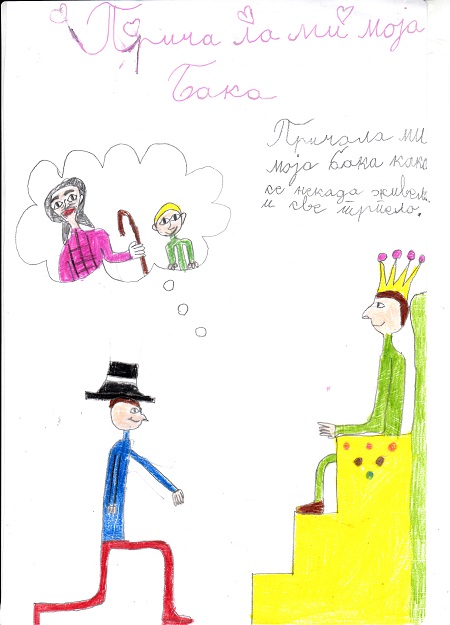 Причала ми моја
Бака
Причала ми
моја бака како
се некада живело
и све трпело.